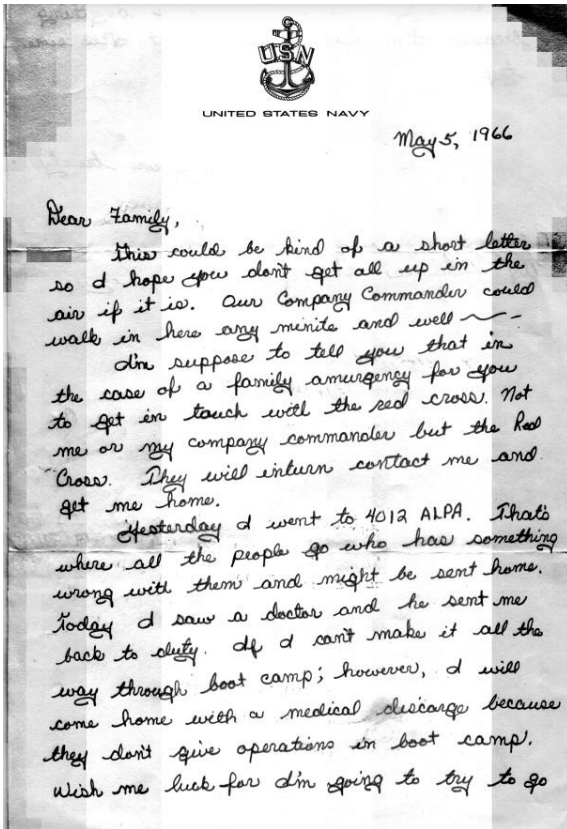 USN
UNITED STATES NAVY
May 5, 1966
Dear Family,
This could be kind of a short letter
so I hope you don't get all up in the
air if it is. Our Company Commander could
walk in here any minite and well
I'm suppose to tell you that in
the case of a family amurgency for you
to get in touch with the red cross. Not
me or my company commander but the Red
Cross. They will inturn contact me and
get me home.
Yesterday I went to 4012 ALPA. That's
where all the people go who has something
wrong with them and might be sent home.
Today I saw a doctor and he sent me
back to duty. If I can't make it all the
way through boot camp; however, I will
come home with a medical discarge because
they don't give operations in boot camp.
Wish me luck for I'm going to try to go